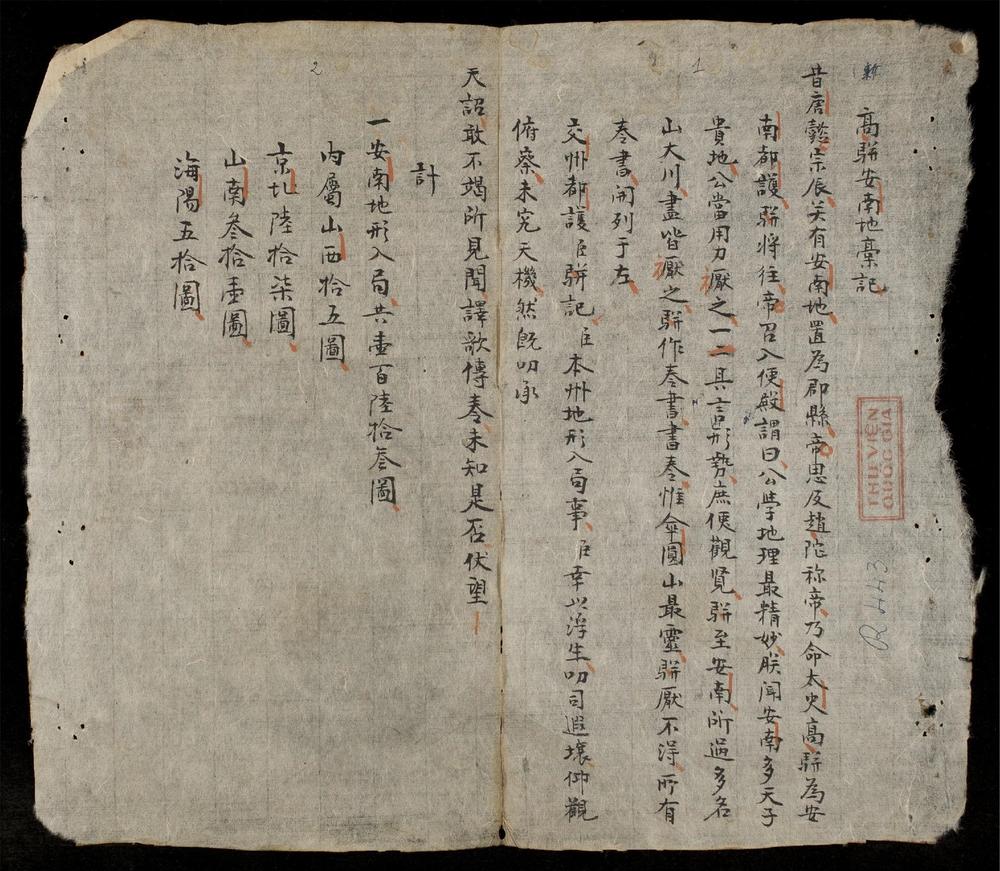 高駢安南地稾記
昔唐懿宗辰关有安南地置為郡縣帝思及趙陀称帝乃命太史高駢為安
南都護駢將往帝召入便殿謂曰公学地理最精妙朕聞安南多天子
貴地公當用力厭之一二具言形勢庶便觀覽駢至安南所過多名
山大川盡皆厭之駢作奏書書奏惟傘圓山最靈駢厭不得所有
奏書開列于左
交州都護臣駢記臣本州地形入局事臣幸以浮生叨司遐壤仰觀
俯察未究天機然既叨承
天詔敢不竭所見聞譯歌傳奏未知是否伏望
計
一安南地形入局共壹百陸拾叁圖
内屬山西拾五圖
京北陸拾柒圖
山南叁拾壹圖
海陽五拾圖
1
2
THƯ VIỆN
QUỐC GIA
R443